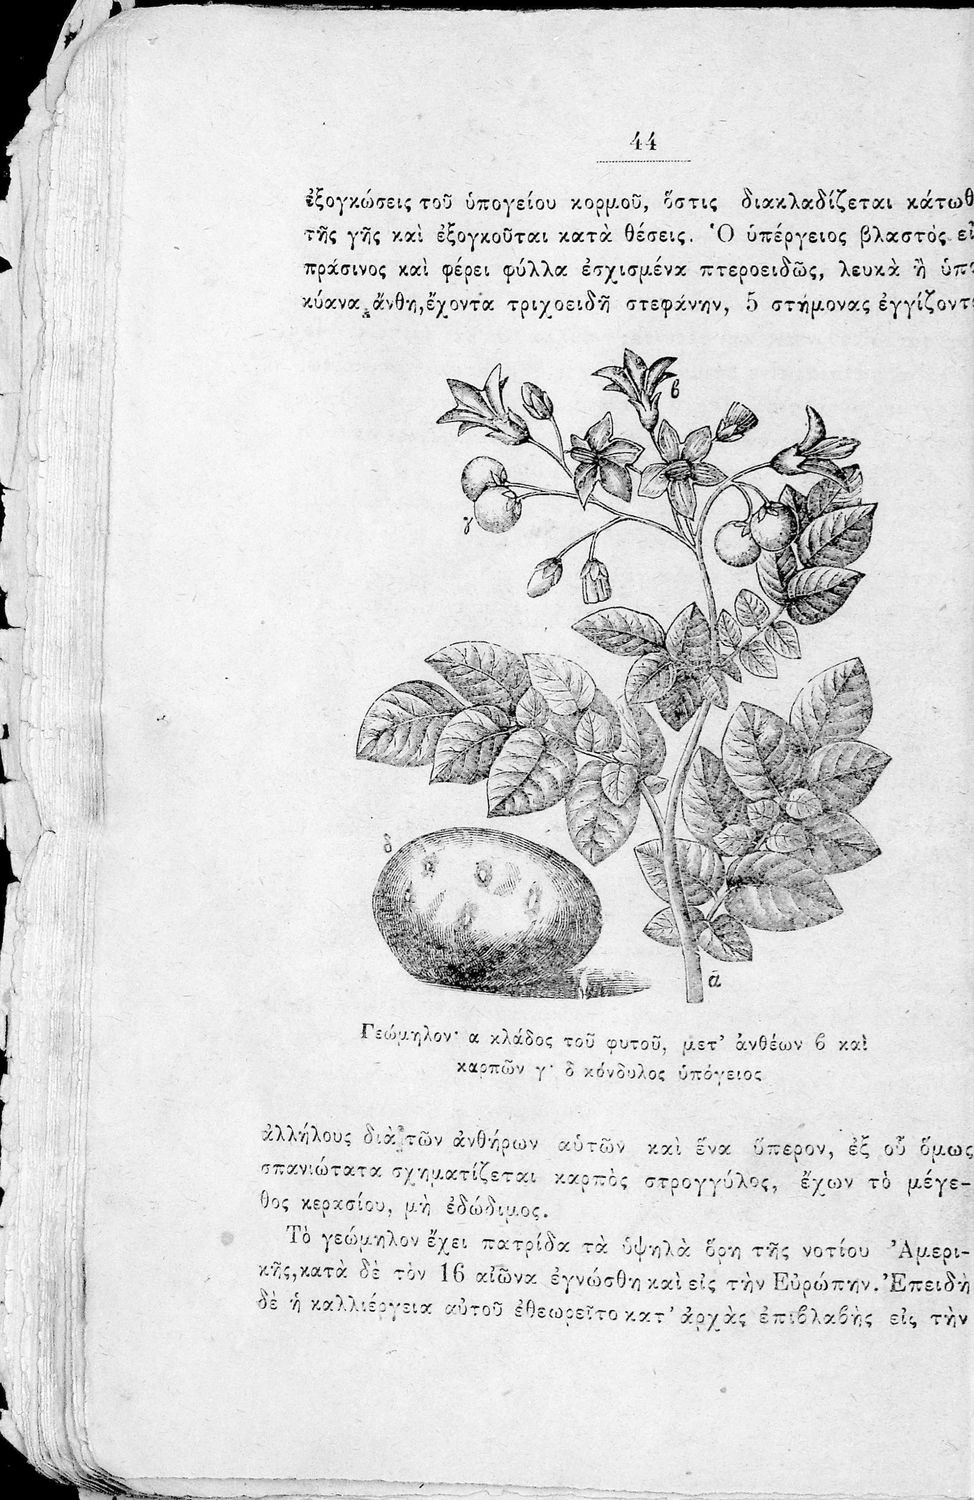 44
ἐξογκώσεις τοῦ ὑπογείου κορμοῦ, ὅστις διακλαδίζεται κάτωθ
τῆς γῆς καὶ ἐξογκοῦται κατὰ θέσεις. Ὁ ὑπέργειος βλαστὸς εἶ
πράσινος καὶ φέρει φύλλα ἐσχισμένα πτεροειδῶς, λευκὰ ἢ ὑπ
κύανα ἄνθη, ἔχοντα τριχοειδῆ στεφάνην, 5 στήμονας ἐγγίζοντ
β
γ
δ
α
Γεώμηλον· α κλάδος τοῦ φυτοῦ, μετ’ ἀνθέων β καὶ
καρπῶν γ· δ κόνδυλος ὑπόγειος
ἀλλήλους διὰ τῶν ἀνθήρων αὑτῶν καὶ ἕνα ὕπερον, ἐξ οὗ ὅμως
σπανιώτατα σχηματίζεται καρπὸς στρογγύλος, ἔχων τὸ μέγε-
θος κερασίου, μὴ ἐδώδιμος.
Τὸ γεώμηλον ἔχει πατρίδα τὰ ὑψηλὰ ὄρη τῆς νοτίου Ἀμερι-
κῆς, κατὰ δὲ τὸν 16 αἰῶνα ἐγνώσθη καὶ εἰς τὴν Εὐρώπην. Ἐπειδὴ
δὲ ἡ καλλιέργεια αὐτοῦ ἐθεωρεῖτο κατ’ ἀρχὰς ἐπιβλαβὴς εἰς τὴν